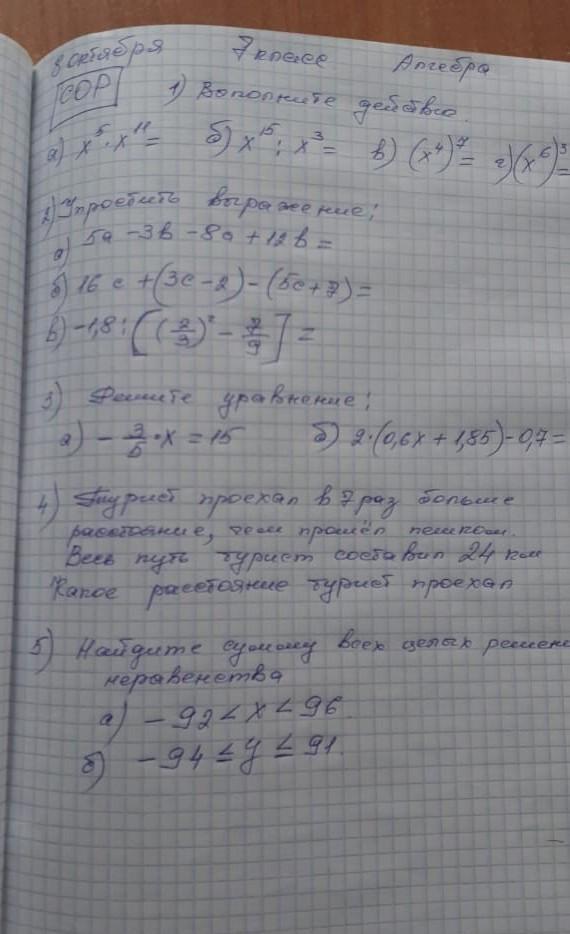 8 октября 7 класс Алгебра
СОР 1) Выполните действие.
а) x⁵ · x¹¹ = б) x¹⁵ : x³ = в) (x⁴)⁷ = г) (x⁶)³ =
2) Упростить выражение:
а) 5a - 3b - 8a + 12b =
б) 16c + (3c - 2) - (5c + 7) =
в) -1,8 : [(2/3)² - 7/9] =
3) Решите уравнение:
а) - 3/5 · x = 15 б) 2 · (0,6x + 1,85) - 0,7 =
4) Турист проехал в 7 раз больше
расстояние, чем прошёл пешком.
Весь путь турист составил 24 км
Какое расстояние турист проехал
5) Найдите сумму всех целых решен
неравенства
а) -92 < x < 96.
б) -94 ≤ y ≤ 91.